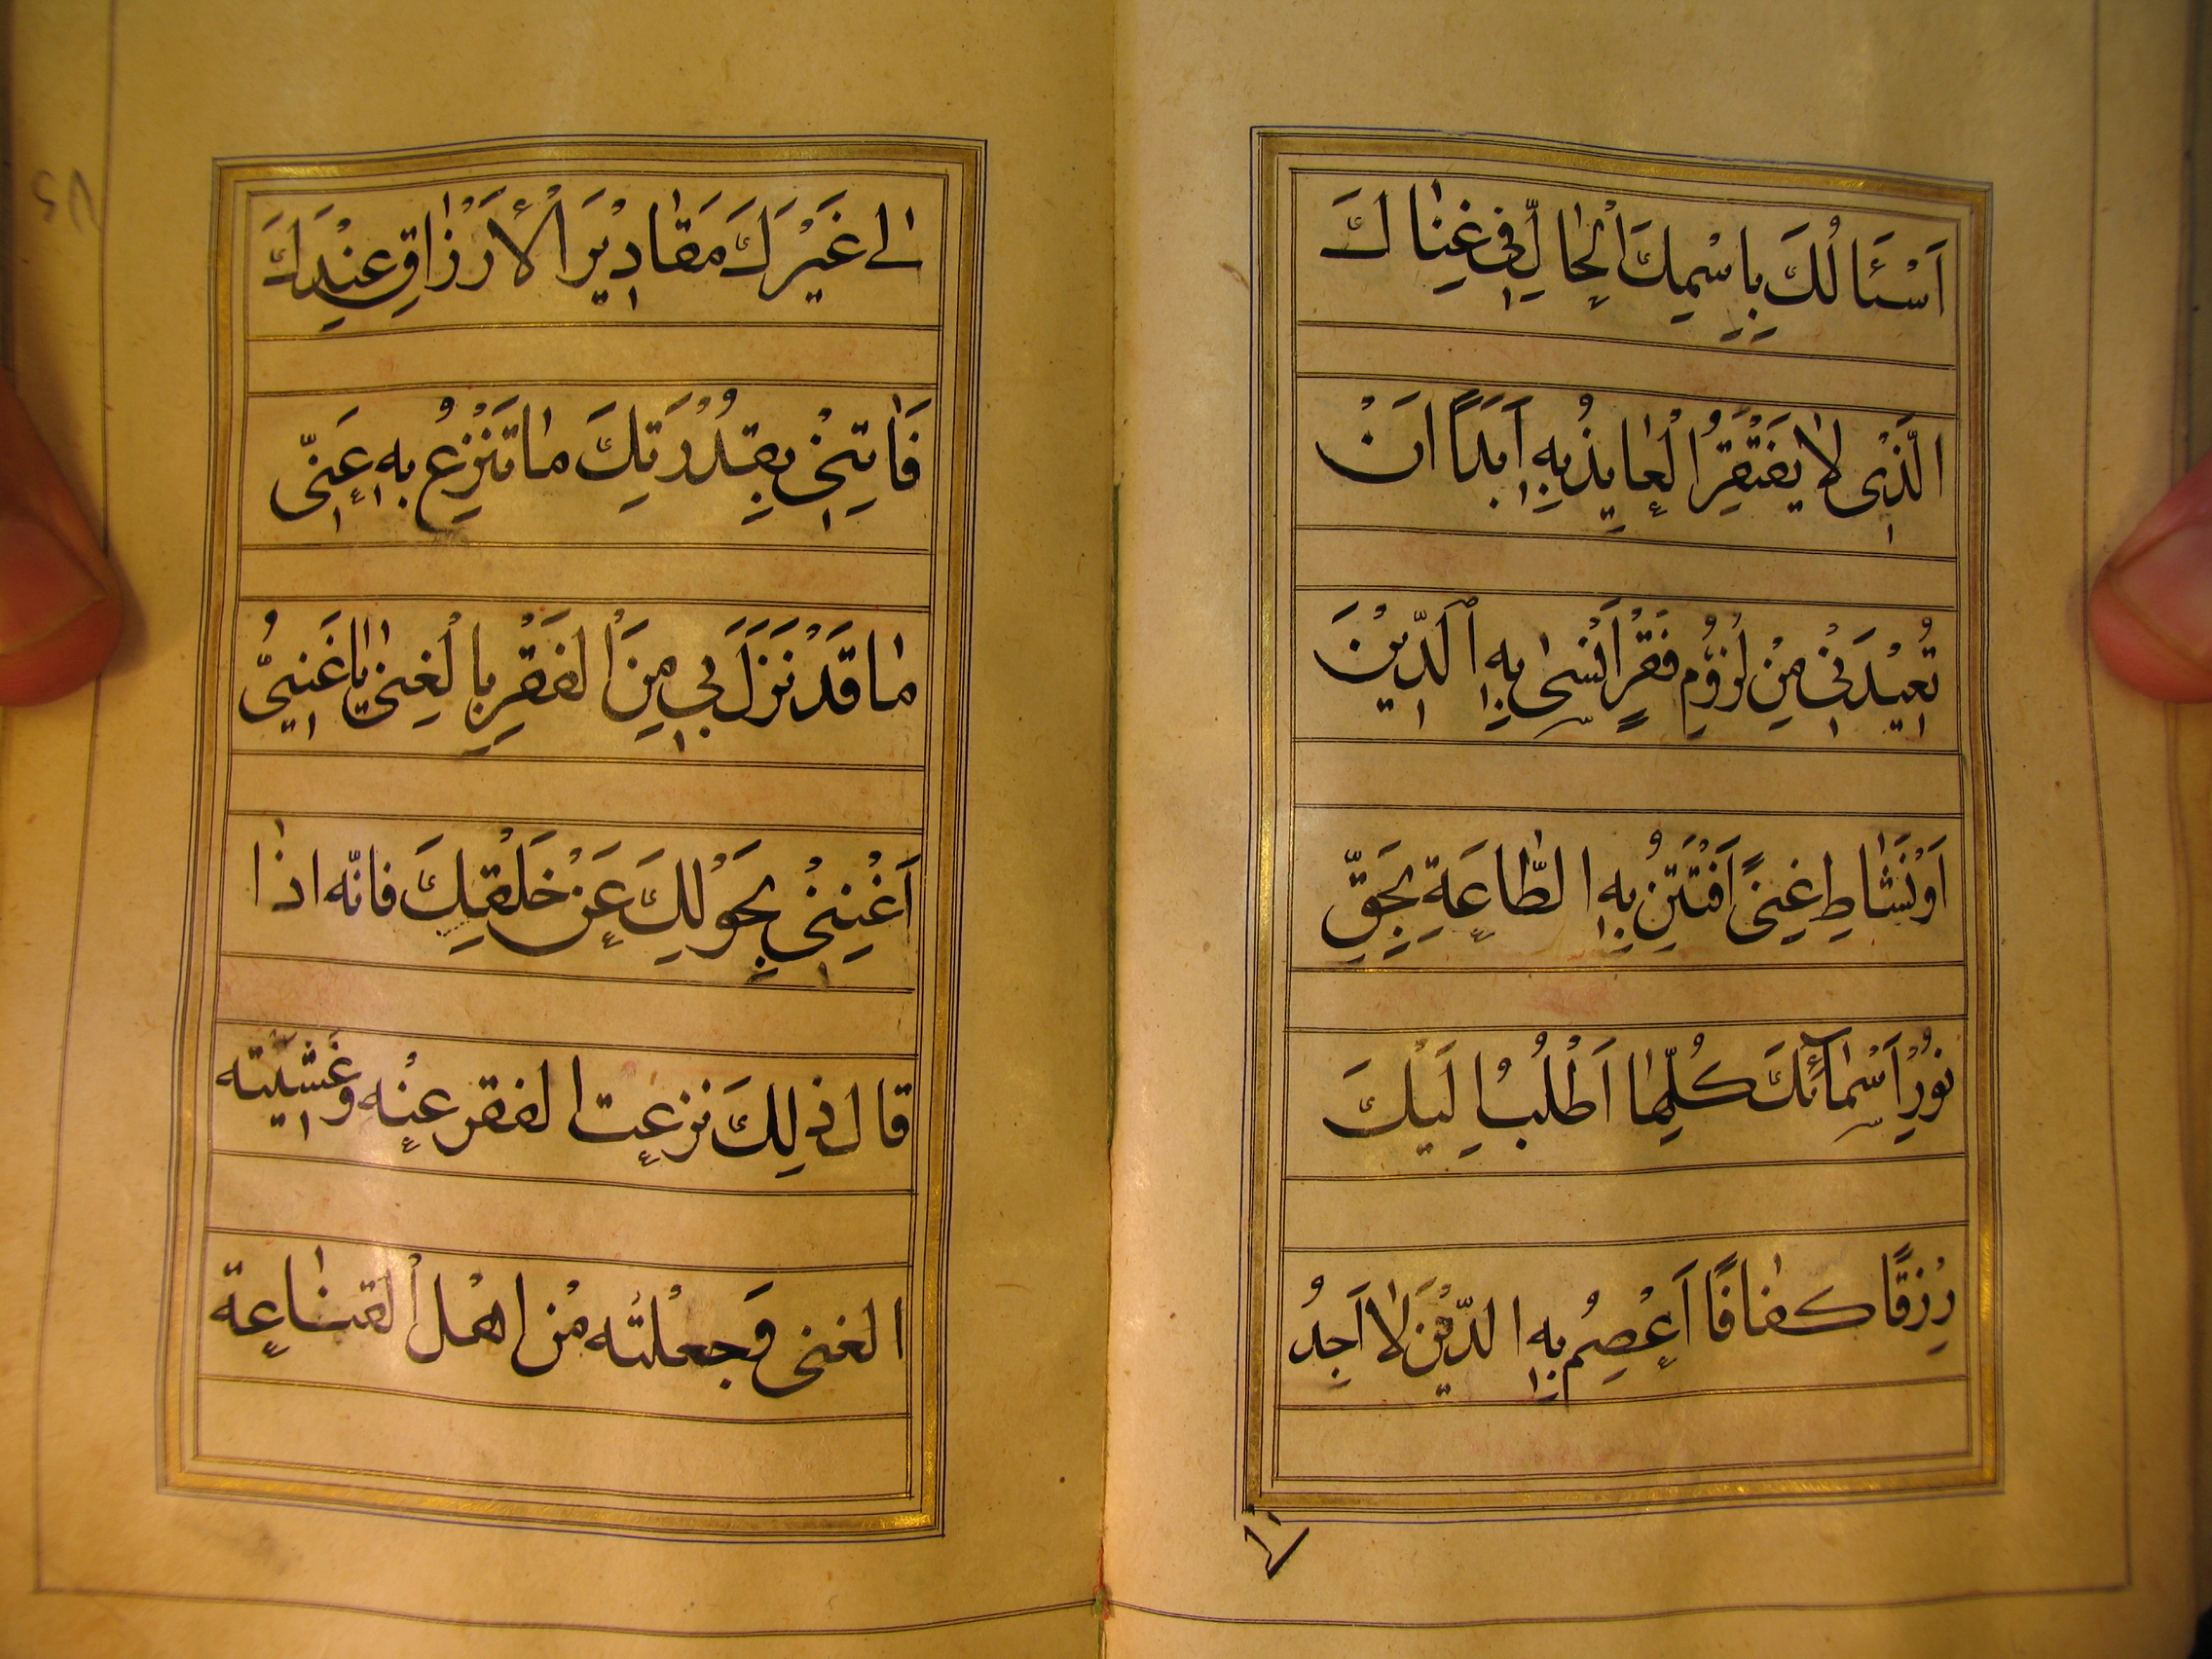 اَسْئَالُكَ بِاسْمِكَ الْحٰالِّ فِي غِنٰاكَ
الَّذِى لٰا يَفْتَقِرُ الْعٰايِذُ بِهِ اَبَدًا اَنْ
تُعِيْدَنِيْ مِنْ لُزُوْمِ فَقْرٍ اَنْسٰى بِهِ الدِّيْنَ
اَوْ نَشٰاطِ غِنىً اَفْتَتِنُ بِهِ الطّٰاعَةِ بِحَقِّ
نُوْرِ اَسْمٰآئِكَ كُلِّهٰا اَطْلُبُ اِلَيْكَ
رِزْقًا كَفٰافًا اَعْصِمُ بِهِ الدِّيْنَ لٰا اَجِدُ
الى
الٰى غَيْرَكَ مَقٰادِيْرَ الْأَرْزٰاقِ عِنْدِكَ
فَاٰتِنِيْ بِقُدْرَتِكَ مٰا تَنْزِعُ بِهِ عَنِّى
مٰا قَدْ نَزَلَ بِي مِنَ الْفَقْرِ بِالْغِنىٰ يٰا غَنِيُّ
اَغْنِنِيْ بِحَوْلِكَ عَنْ خَلْقِكَ فانّه اذٰا
قال ذلِكَ نزعت الفقر عنْه وَغَشَّيته
الغنى وَجعلْتُه مْن اهْل القنٰاعة